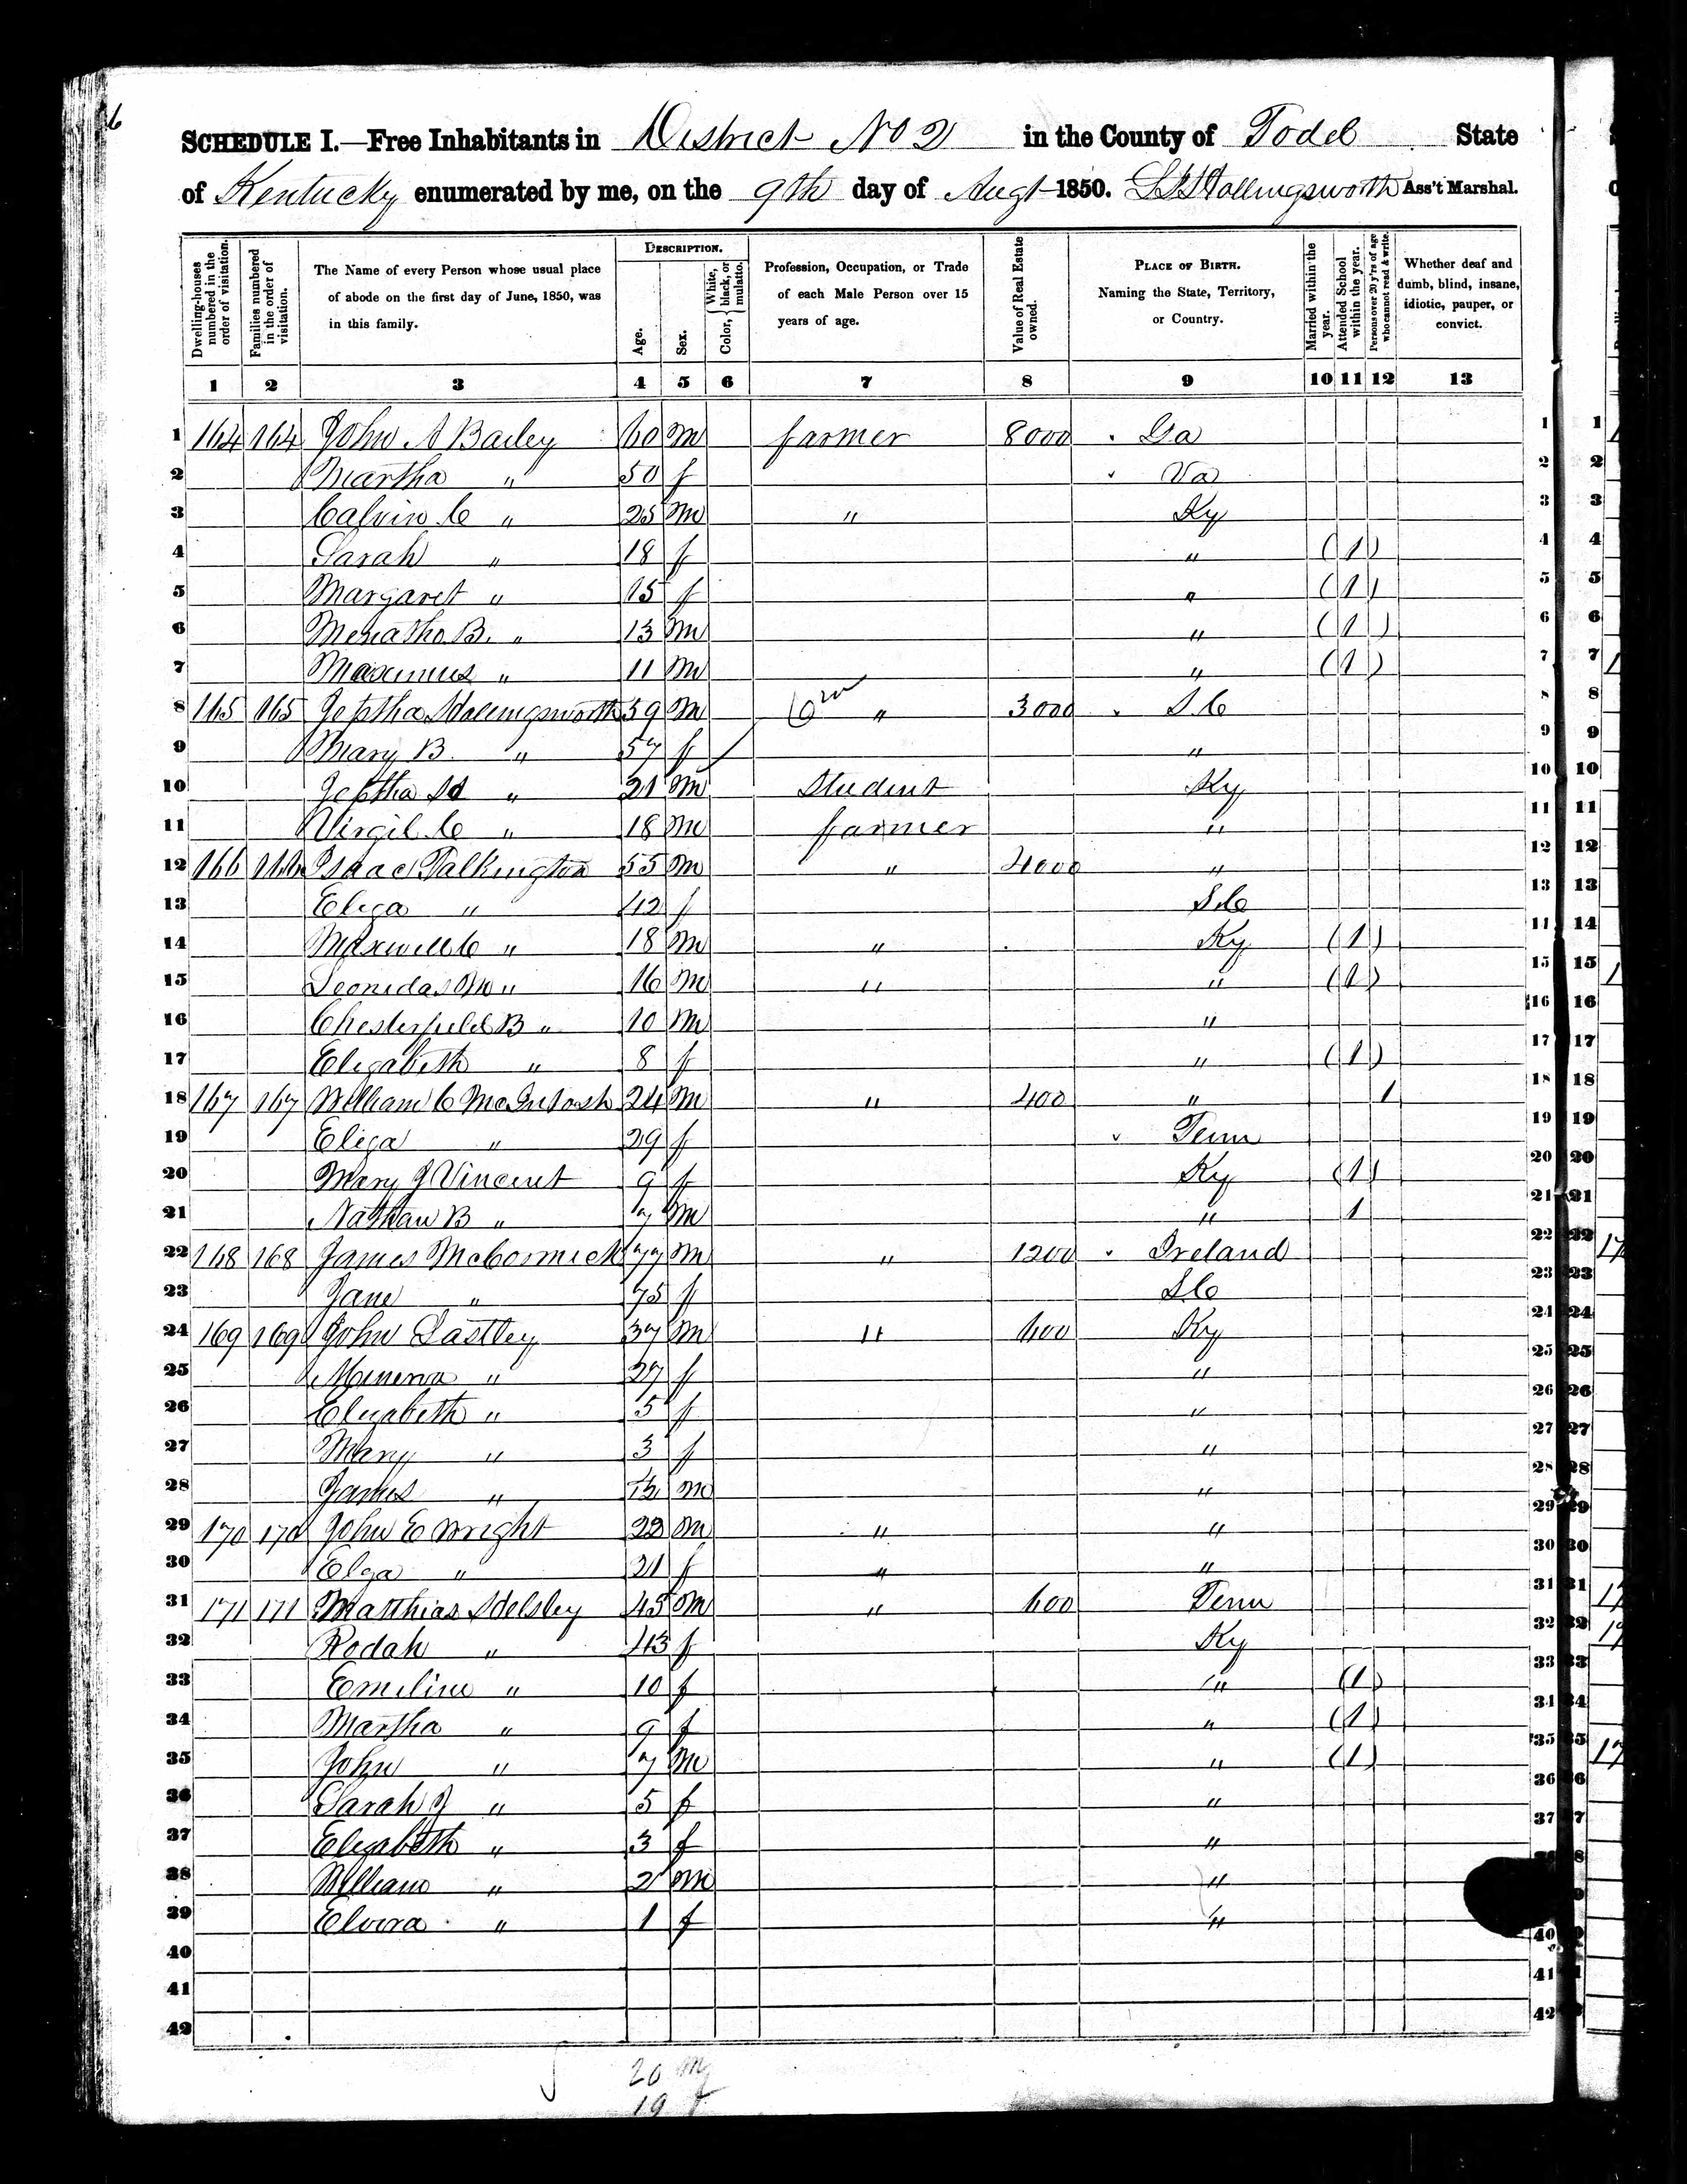 6
SCHEDULE I.—Free Inhabitants in District No 2 in the County of Todd State
of Kentucky enumerated by me, on the 9th day of Augt 1850. Hollingsworth Ass't Marshal.
Dwelling-houses numbered in the order of visitation. | Families numbered in the order of visitation. | The Name of every Person whose usual place of abode on the first day of June, 1850, was in this family. | DESCRIPTION. Age. Sex. Color, White, black, or mulatto. | Profession, Occupation, or Trade of each Male Person over 15 years of age. | Value of Real Estate owned. | PLACE OF BIRTH. Naming the State, Territory, or Country. | Married within the year. | Attended School within the year. | Persons over 20 y'rs of age who cannot read & write. | Whether deaf and dumb, blind, insane, idiotic, pauper, or convict.
1 2 3 4 5 6 7 8 9 10 11 12 13
1 164 164 John A Bailey 60 m farmer 8000 Ga 1
2 Martha " 50 f Va 2
3 Calvin C " 25 m " Ky 3
4 Sarah " 18 f " (1) 4
5 Margaret " 15 f " (1) 5
6 B. " 13 m " (1) 6
7 Maximus " 11 m " (1) 7
8 165 165 Jeptha Hollingsworth 59 m " 3000 S.C 8
9 Mary B. " 57 f " 9
10 Jeptha H " 21 m Student Ky 10
11 Virgil C " 18 m farmer " 11
12 166 166 Isaac Talkington 55 m " 4000 " 12
13 Eliza " 42 f S.C 13
14 Maxwell C " 18 m " Ky (1) 14
15 Leonidas " 16 m " " (1) 15
16 Chesterfield B " 10 m " 16
17 Elizabeth " 8 f " (1) 17
18 167 167 William C McIntosh 24 m " 400 " 1 18
19 Eliza " 29 f Tenn 19
20 Mary J Vincent 9 f Ky (1) 20
21 Nathan B " 7 m " 1 21
22 168 168 James McCormick 77 m " 1200 Ireland 22
23 Jane " 75 f S.C 23
24 169 169 John Lastley 37 m " 600 Ky 24
25 Minerva " 27 f " 25
26 Elizabeth " 5 f " 26
27 Mary " 3 f " 27
28 James " m " 28
29 170 170 John E Wright 22 m " " 29
30 Elza " 21 f " " 30
31 171 171 Matthias Helsley 45 m " 600 Tenn 31
32 Rodah " 43 f Ky 32
33 Emeline " 10 f " (1) 33
34 Martha " 9 f " (1) 34
35 John " 7 m " (1) 35
36 Sarah J " 5 f " 36
37 Elizabeth " 3 f " 37
38 William " 2 m "
39 Elvira " 1 f "
40 40
41 41
42 42
20 m
19 f